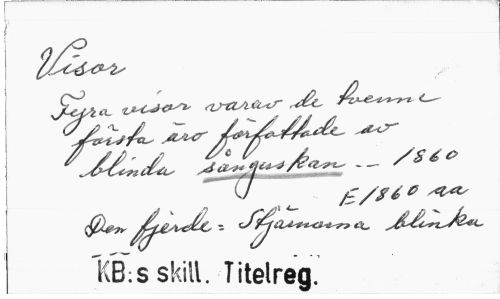 Visor
Fyra visor varav de tvenne
första äro författade av
blinda sånguskan -- 1860
E 1860 aa
Den fjerde = Stjärnorna blinka
KB:s skill. Titelreg.